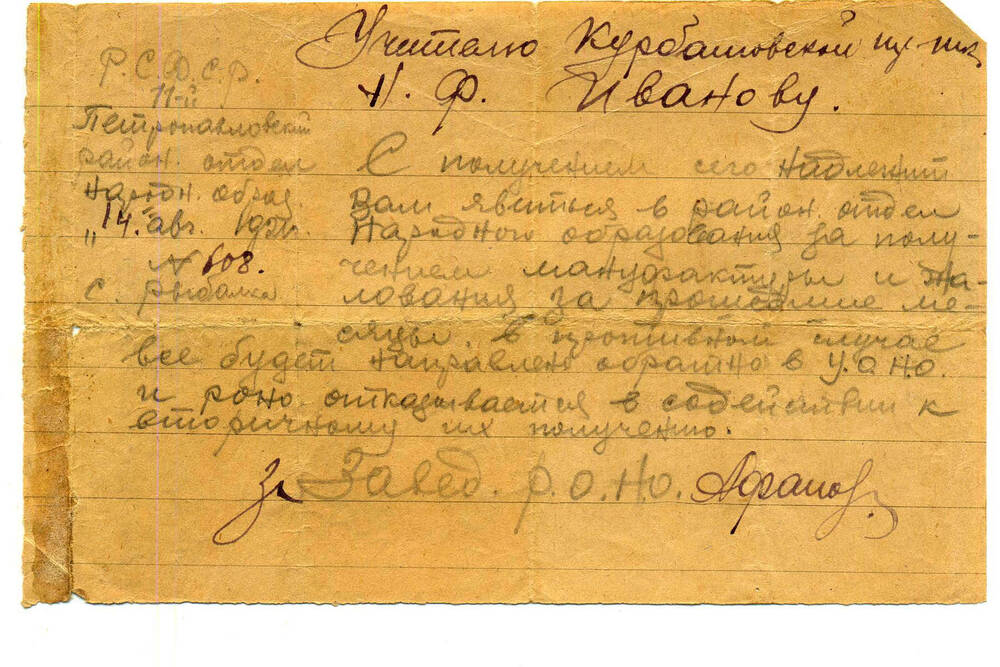 Учителю Курбатовской
Н. Ф. Иванову.
Р.С.Ф.С.Р.
11-й
Петропавловский
район. отдел
народн. образ.
"14" авг.
№ 608.
с. Рыбалка
С получением сего надлежит
Вам явиться в район. отдел
Народного образования за полу-
чением мануфактуры и жа-
лования за прошлые ме-
сяцы, в противной случае
все будет направлено обратно в У.О.Н.О.
и роно отказывается в содействии к
вторичному их получению.
За Завед. р.о.н.о.